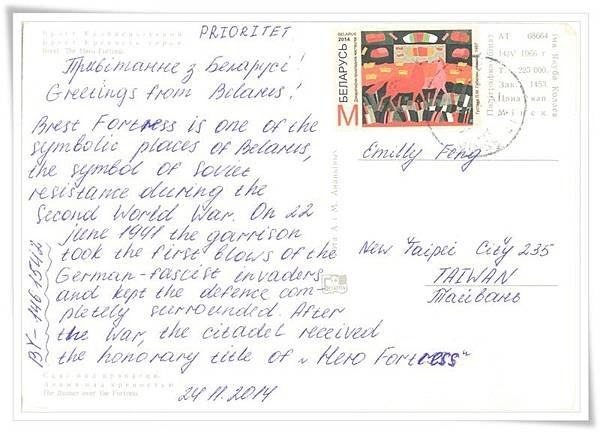 PRIORITET
Брест. Крепость-герой
Brest. The Hero Fortress
Прывітанне з Беларусі!
Greetings from Belarus!
Brest Fortress is one of the
symbolic places of Belarus,
the symbol of Soviet
resistance during the
Second World War. On 22
june 1941 the garrison
took the first blows of the
German-fascist invaders
and kept the defence com-
pletely surrounded. After
the war, the citadel received
the honorary title of „Hero Fortress“
24 11. 2014
BY-1461542
Знамя над крепостью
The Banner over the Fortress
БЕЛАРУСЬ
BELARUS
2014
M
АТ 68664
14/V 1966 г.
Т. 225 000.
Зак. 1453.
Цана кап.
Мінск.
імя Якуба Коласа
Emilly Feng
New Taipei City 235
TAIWAN
Тайвань